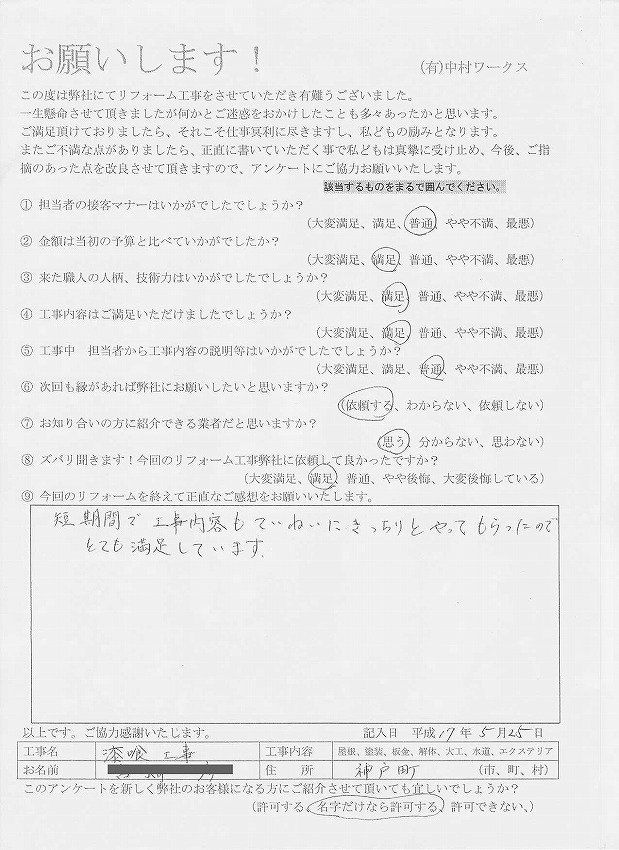 お願いします！
(有)中村ワークス
この度は弊社にてリフォーム工事をさせていただき有難うございました。
一生懸命させて頂きましたが何かとご迷惑をおかけしたことも多々あったかと思います。
ご満足頂けておりましたら、それこそ仕事冥利に尽きますし、私どもの励みとなります。
またご不満な点がありましたら、正直に書いていただく事で私どもは真摯に受け止め、今後、ご指
摘のあった点を改良させて頂きますので、アンケートにご協力お願いいたします。
該当するものをまるで囲んでください。
① 担当者の接客マナーはいかがでしたでしょうか？
(大変満足、満足、普通、やや不満、最悪)
② 金額は当初の予算と比べていかがでしたか？
(大変満足、満足、普通、やや不満、最悪)
③ 来た職人の人柄、技術力はいかがでしたでしょうか？
(大変満足、満足、普通、やや不満、最悪)
④ 工事内容はご満足いただけましたでしょうか？
(大変満足、満足、普通、やや不満、最悪)
⑤ 工事中　担当者から工事内容の説明等はいかがでしたでしょうか？
(大変満足、満足、普通、やや不満、最悪)
⑥ 次回も縁があれば弊社にお願いしたいと思いますか？
(依頼する、わからない、依頼しない)
⑦ お知り合いの方に紹介できる業者だと思いますか？
(思う、分からない、思わない)
⑧ ズバリ聞きます！今回のリフォーム工事弊社に依頼して良かったですか？
(大変満足、満足、普通、やや後悔、大変後悔している)
⑨ 今回のリフォームを終えて正直なご感想をお願いいたします。
短期間で工事内容もていねいにきっちりとやってもらったので
とても満足しています。
以上です。ご協力感謝いたします。
記入日　平成17年5月25日
工事名　漆喰工事　工事内容　屋根、塗装、板金、解体、大工、水道、エクステリア
お名前　住　所　神戸町　(市、町、村)
このアンケートを新しく弊社のお客様になる方にご紹介させて頂いても宜しいでしょうか？
(許可する、名字だけなら許可する、許可できない、)